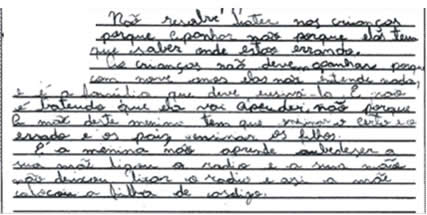 Não resolve bater nos crianças
porque apanhar não porque elas tem
que saber onde estão errando.
As crianças não deve apanhar porque
com nove anos elas não intende nada,
e é a família que deve ensina-la E não
é batendo que ela vai aprender, não porque
a mãe deste menino tem que ensinar o certo e o
errado e os pais ensinar os filhos.
E a menina não aprende aubedeser a
sua mãe ligou a radio e a sua mãe
não deixou ficar o radio e asi a mãe
colocou a filha de castigo.